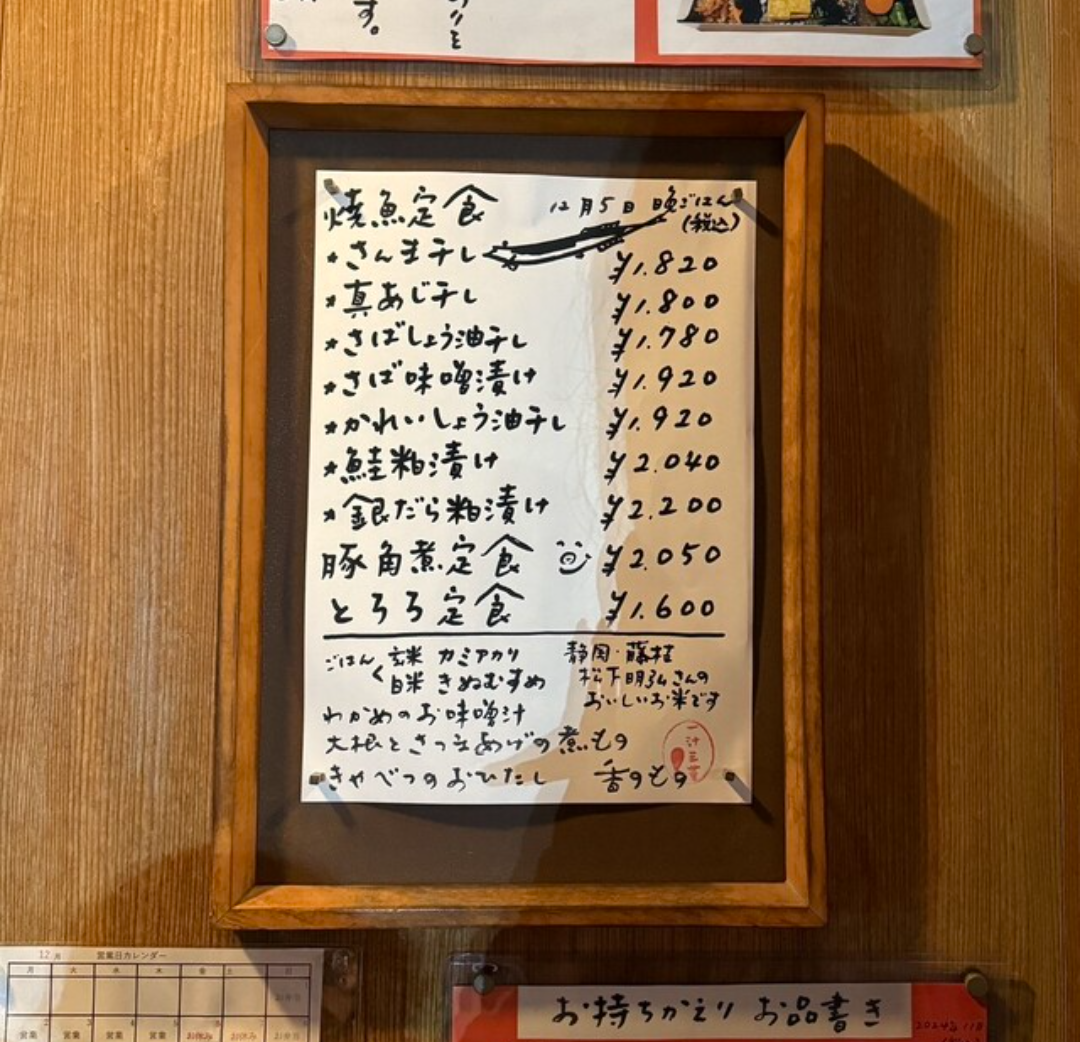 す。
焼魚定食 12月5日 晩ごはん
(税込)
*さんま干し ¥1.820
*真あじ干し ¥1.800
*さばしょう油干し ¥1.780
*さば味噌漬け ¥1.920
*かれいしょう油干し ¥1.920
*鮭粕漬け ¥2.040
*銀だら粕漬け ¥2.200
豚角煮定食 ¥2.050
とろろ定食 ¥1.600
ごはん 玄米 カミアカリ
白米 きぬむすめ
静岡・藤枝
松下明弘さんの
おいしいお米です
わかめのお味噌汁
大根とさつまあげの煮もの
きゃべつのおひたし 香のもの
一汁三菜
12月 営業日カレンダー
月 火 水 木 金 土 日
お弁当
2 3 4 5
営業 営業 営業 営業 お休み お休み お弁当
お持ちかえり お品書き